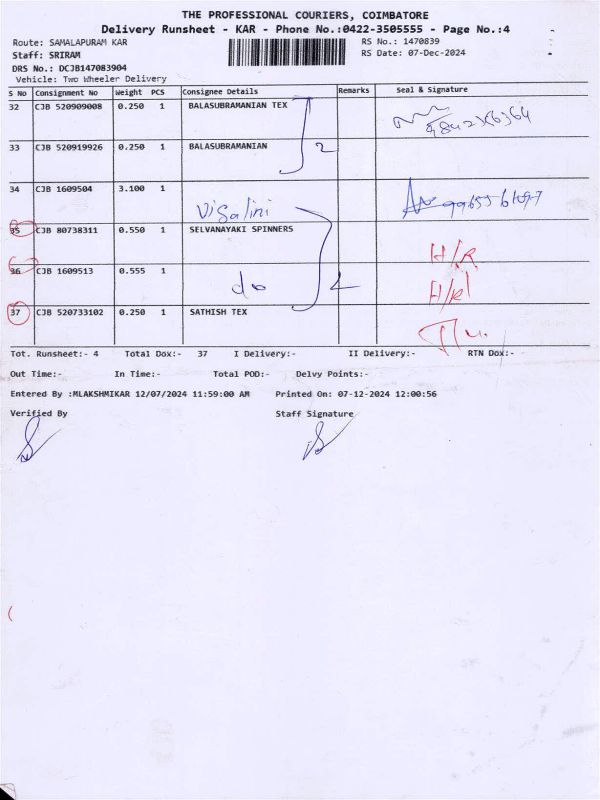 THE PROFESSIONAL COURIERS, COIMBATORE
Delivery Runsheet - KAR - Phone No.:0422-3505555 - Page No.:4
Route: SAMALAPURAM KAR
RS No.: 1470839
Staff: SRIRAM
RS Date: 07-Dec-2024
DRS No.: DCJB147083904
Vehicle: Two Wheeler Delivery
S No Consignment No Weight PCS Consignee Details Remarks Seal & Signature
32 CJB 520909008 0.250 1 BALASUBRAMANIAN TEX
33 CJB 520919926 0.250 1 BALASUBRAMANIAN 2
34 CJB 1609504 3.100 1
Visalini
35 CJB 80738311 0.550 1 SELVANAYAKI SPINNERS H/R
36 CJB 1609513 0.555 1
do 2 H/R
37 CJB 520733102 0.250 1 SATHISH TEX
Tot. Runsheet:- 4 Total Dox:- 37 I Delivery:- II Delivery:- RTN Dox:-
Out Time:- In Time:- Total POD:- Delvy Points:-
Entered By :MLAKSHMIKAR 12/07/2024 11:59:00 AM Printed On: 07-12-2024 12:00:56
Verified By Staff Signature